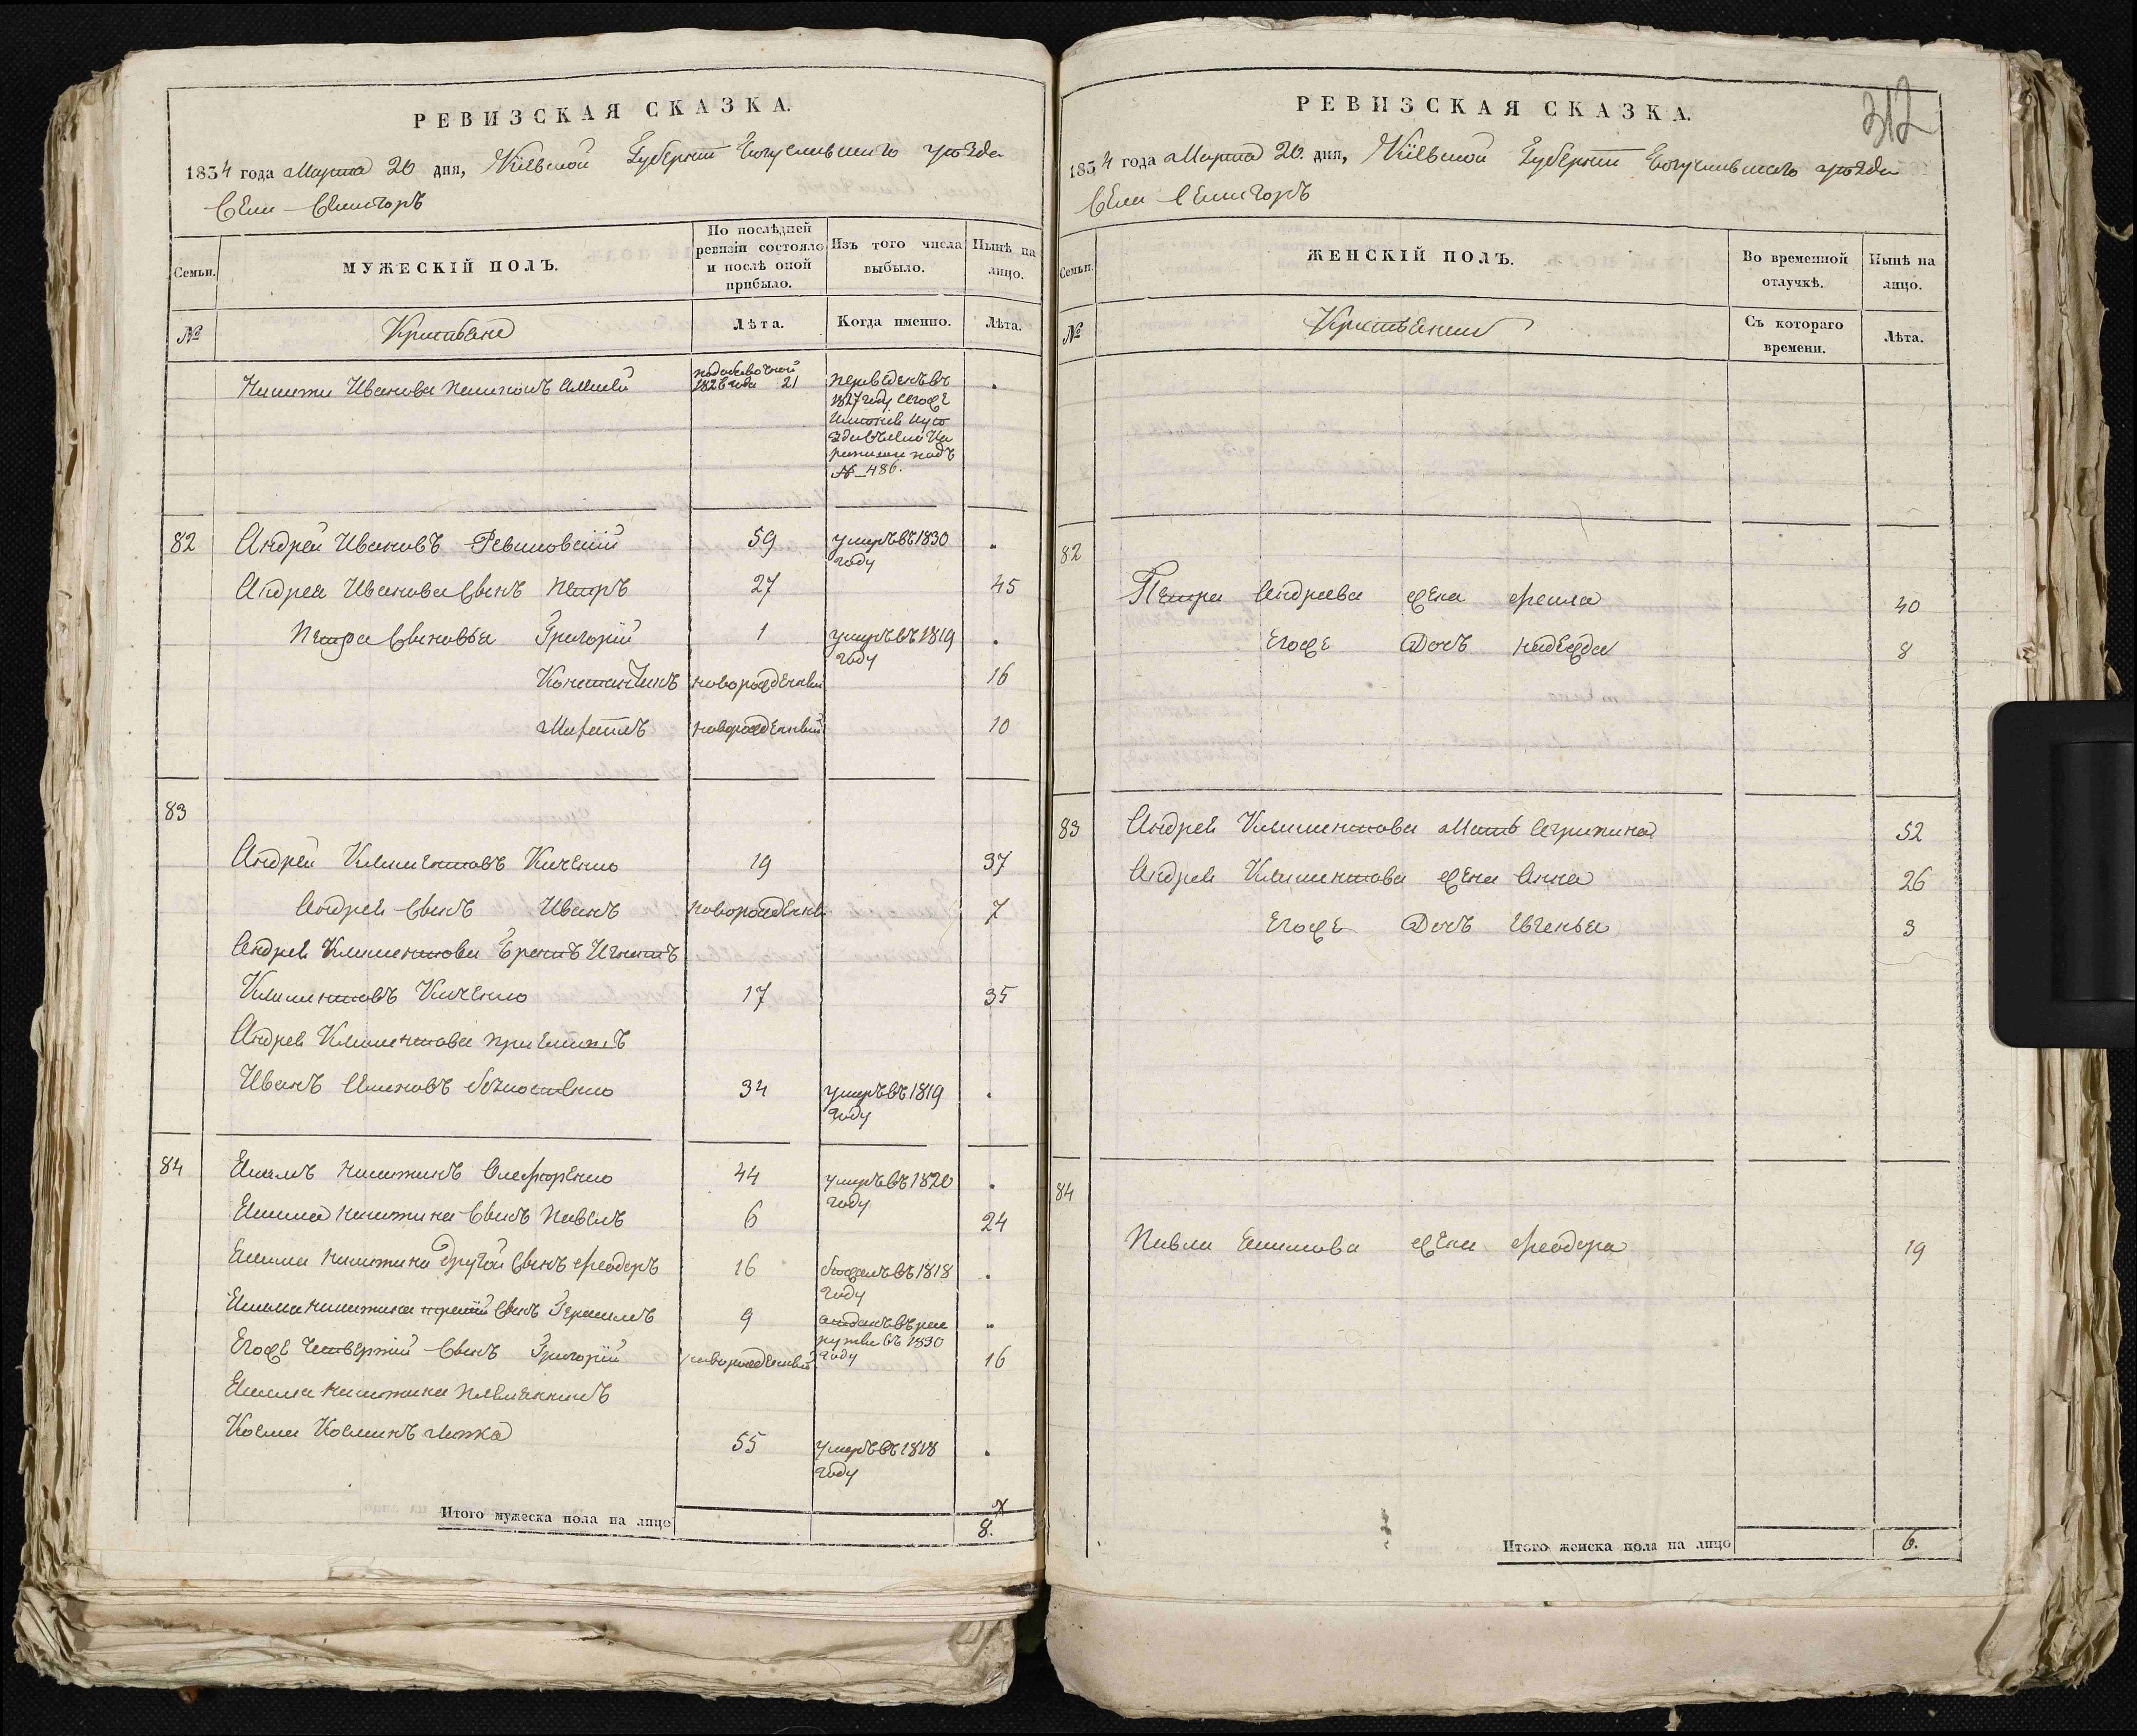 РЕВИЗСКАЯ СКАЗКА.
1834 года Марта 20 дня, Кіевской Губерніи Богуславского уѣзда
Села Селигоръ
Семьи.
МУЖЕСКІЙ ПОЛЪ.
По послѣдней ревизіи состояло и послѣ оной прибыло.
Изъ того числа выбыло.
Нынѣ на лицо.
№
Крестьяне
Лѣта.
Когда именно.
Лѣта.
Никиты Иванова Алексѣй 21
1827 году
№ 486.
82 Андрей Ивановъ 59 умеръ въ 1830 году .
Андрея Иванова сынъ Петръ 27 45
Петра сыновья Григорій 1 умеръ въ 1819 году .
Константинъ новорожденный 16
новорожденный 10
83
Андрей Климентовъ Киченко 19 37
Андрея сынъ Иванъ новорожденный 7
Андрея Климентова братъ Игнатъ
Климентовъ Киченко 17 35
Андрея Климентова
Иванъ 34 умеръ въ 1819 году .
84 Никитинъ 44 умеръ въ 1820 году .
Никитина сынъ Павелъ 6 24
Никитина другой сынъ Феодоръ 16 бежалъ въ 1818 году .
Никитина третій сынъ Герасимъ 9 отданъ въ рекруты въ 1830 году .
Егоже четвертій сынъ Григорій новорожденный 16
Никитина племянникъ
Косма Косминъ 55 умеръ въ 1818 году .
Итого мужеска пола на лицо 8.
312
РЕВИЗСКАЯ СКАЗКА.
1834 года Марта 20. дня, Кіевской Губерніи Богуславского уѣзда
Села Селигоръ
Семьи.
ЖЕНСКІЙ ПОЛЪ.
Во временной отлучкѣ.
Нынѣ на лицо.
№
Крестьянки
Съ котораго времени.
Лѣта.
82
Петра Андреева жена Фекла 40
Егоже дочь Надежда 8
83 Андрея Климентова мать 52
Андрея Климентова жена Анна 26
Егоже дочь Евгенья 3
84
Павла жена Феодора 19
Итого женска пола на лицо 6.